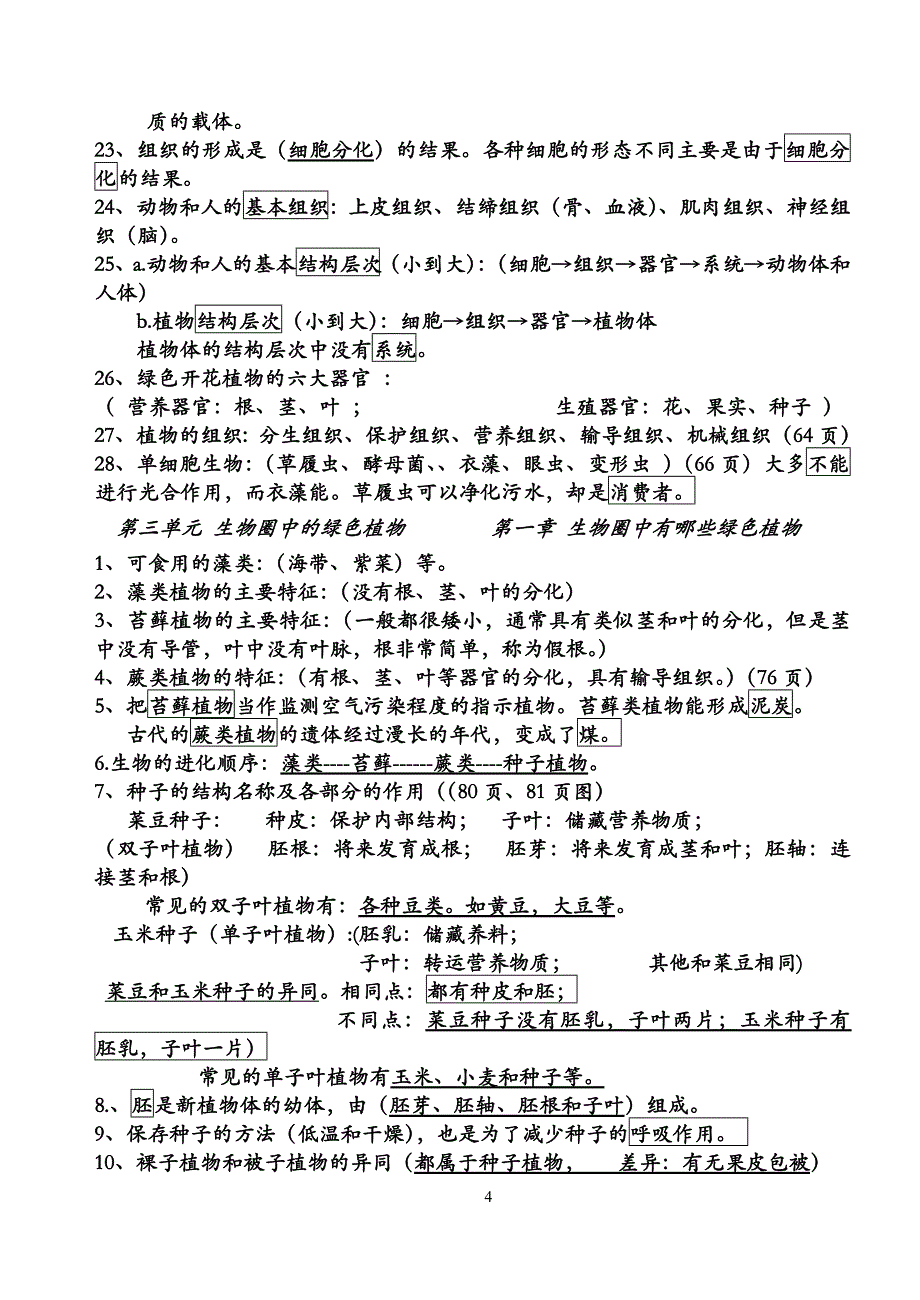 质的载体。
23、组织的形成是（细胞分化）的结果。各种细胞的形态不同主要是由于细胞分
化的结果。
24、动物和人的基本组织：上皮组织、结缔组织（骨、血液）、肌肉组织、神经组
织（脑）。
25、a.动物和人的基本结构层次（小到大）：（细胞→组织→器官→系统→动物体和
人体）
b.植物结构层次（小到大）：细胞→组织→器官→植物体
植物体的结构层次中没有系统。
26、绿色开花植物的六大器官 ：
（ 营养器官：根、茎、叶 ； 生殖器官：花、果实、种子 ）
27、植物的组织：分生组织、保护组织、营养组织、输导组织、机械组织（64 页）
28、单细胞生物：（草履虫、酵母菌、、衣藻、眼虫、变形虫 ）（66 页）大多不能
进行光合作用，而衣藻能。草履虫可以净化污水，却是消费者。
第三单元 生物圈中的绿色植物 第一章 生物圈中有哪些绿色植物
1、可食用的藻类：（海带、紫菜）等。
2、藻类植物的主要特征：（没有根、茎、叶的分化）
3、苔藓植物的主要特征：（一般都很矮小，通常具有类似茎和叶的分化，但是茎
中没有导管，叶中没有叶脉，根非常简单，称为假根。）
4、蕨类植物的特征：（有根、茎、叶等器官的分化，具有输导组织。）（76 页）
5、把苔藓植物当作监测空气污染程度的指示植物。苔藓类植物能形成泥炭。
古代的蕨类植物的遗体经过漫长的年代，变成了煤。
6.生物的进化顺序：藻类----苔藓------蕨类----种子植物。
7、种子的结构名称及各部分的作用（（80 页、81 页图）
菜豆种子： 种皮：保护内部结构； 子叶：储藏营养物质；
（双子叶植物） 胚根：将来发育成根； 胚芽：将来发育成茎和叶；胚轴：连
接茎和根）
常见的双子叶植物有：各种豆类。如黄豆，大豆等。
玉米种子（单子叶植物）:(胚乳：储藏养料；
子叶：转运营养物质； 其他和菜豆相同)
菜豆和玉米种子的异同。相同点：都有种皮和胚；
不同点：菜豆种子没有胚乳，子叶两片；玉米种子有
胚乳，子叶一片）
常见的单子叶植物有玉米、小麦和种子等。
8.、胚是新植物体的幼体，由（胚芽、胚轴、胚根和子叶）组成。
9、保存种子的方法（低温和干燥），也是为了减少种子的呼吸作用。
10、裸子植物和被子植物的异同（都属于种子植物， 差异：有无果皮包被）
4